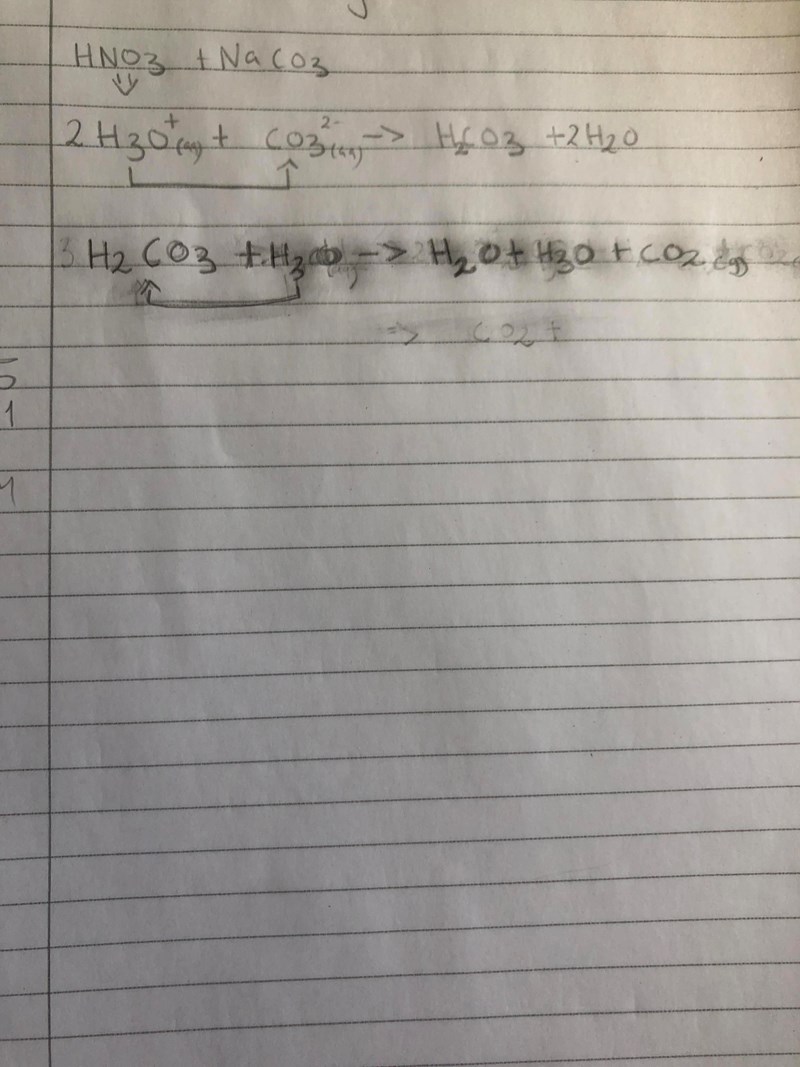 HNO3 + NaCO3
⇓
2 H3O+(aq) + CO3 2-(aq) -> H2CO3 + 2H2O
3 H2CO3 + H3O -> H2O + H3O + CO2 (g)
=> CO2 +
5
1
1